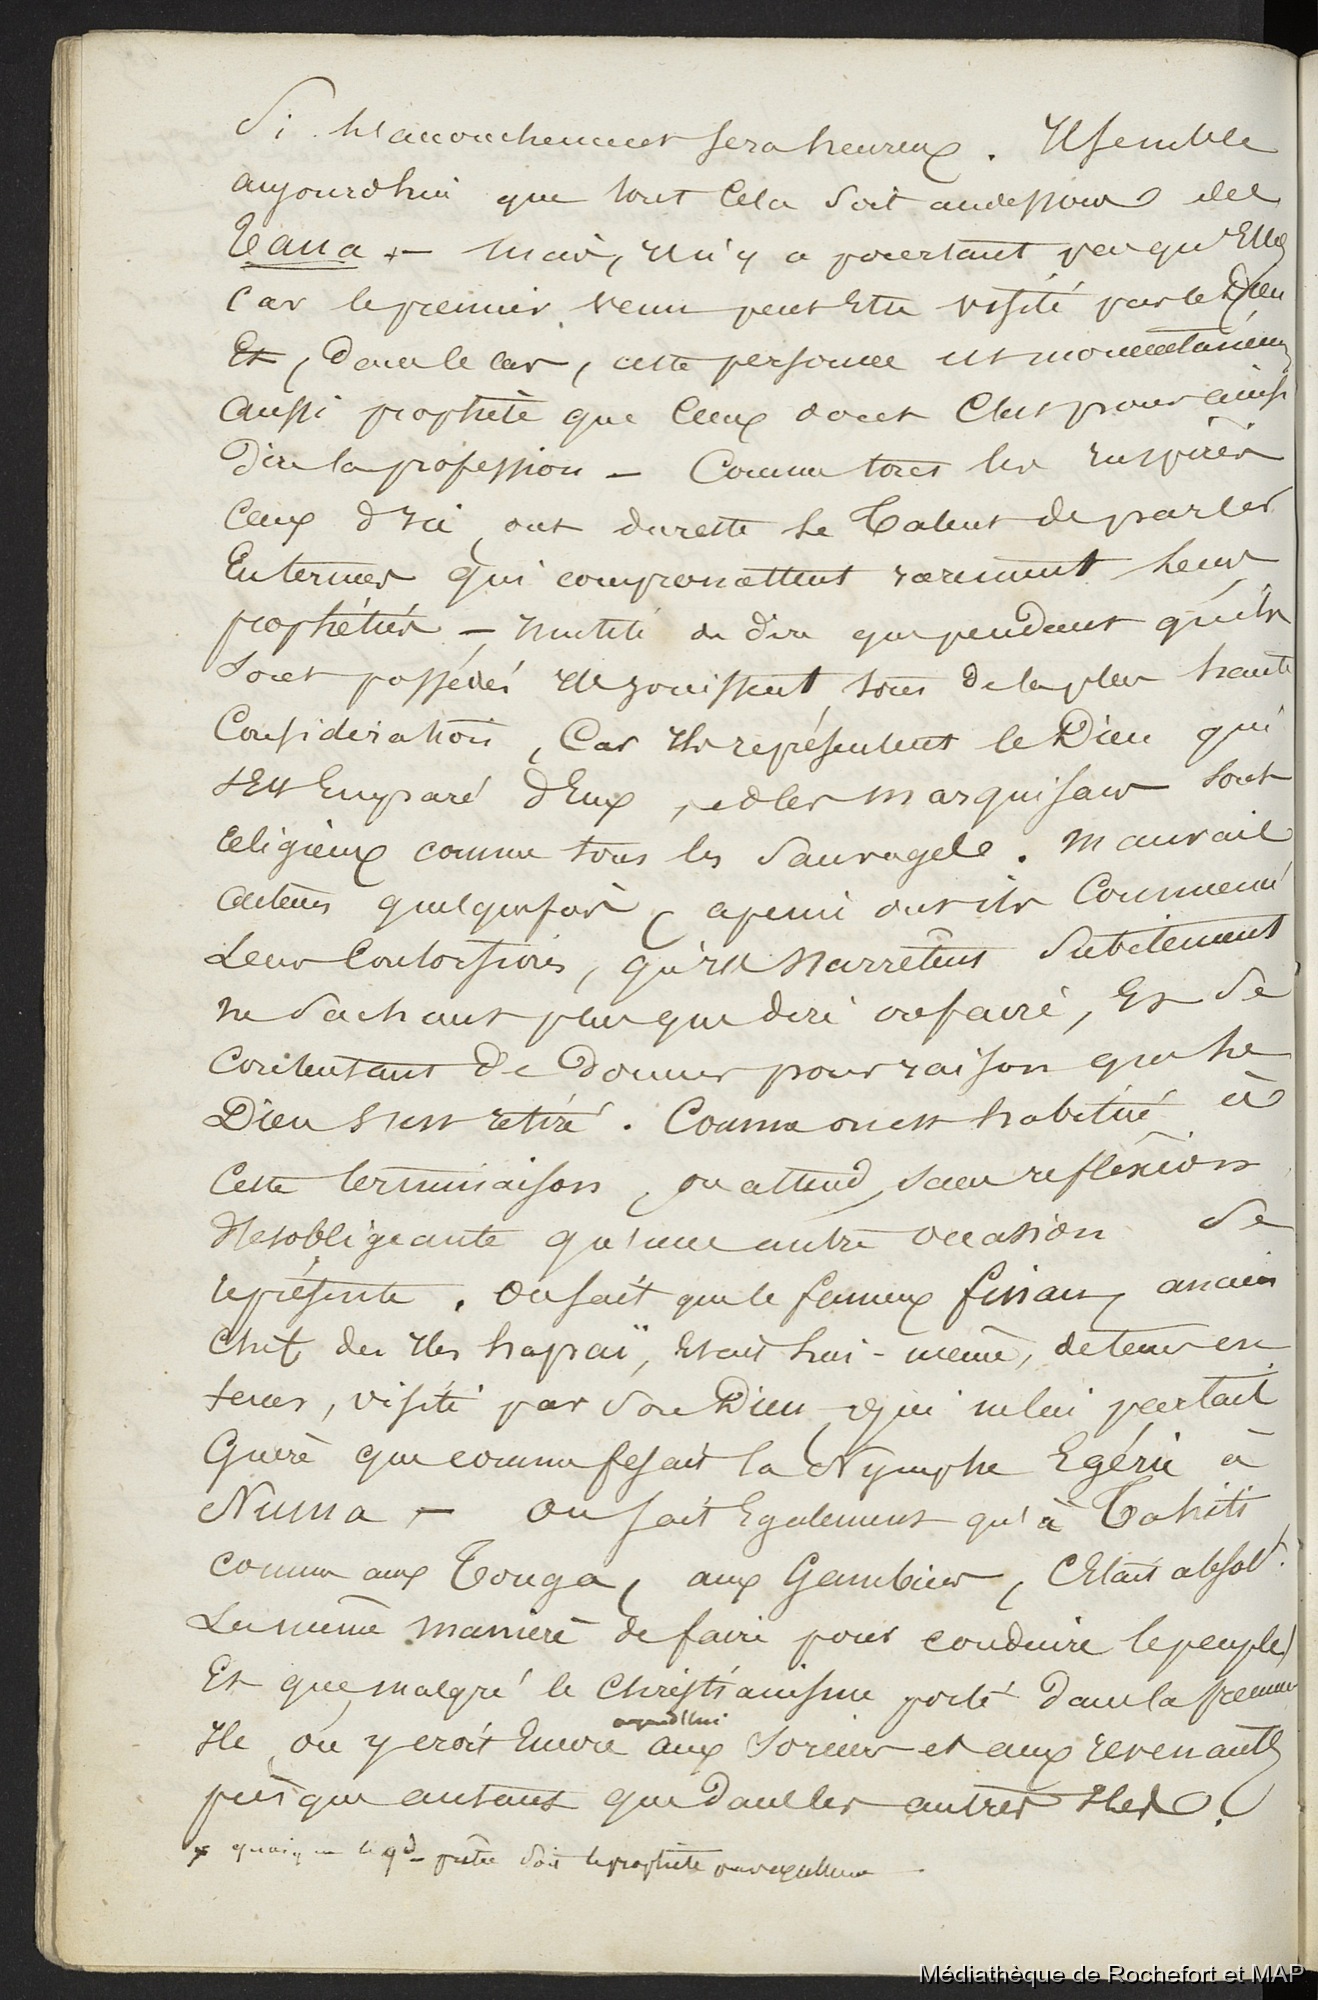 Si l'accouchement sera heureux. Il semble
aujourdhui que tout cela soit audessous des
Taua + – mais, Il n'y a pourtant peu qu'Elles
Car le premier venu peut Etre visité par le Dieu
Et, dans le cas, cette personne est momentanémt
aussi prophète que Ceux dont C'est pour ainsi
dire la profession – Comme tous les Inspirés
Ceux d'Ici, ont du reste le Talent de parler
En termes qui compromettent rarement leurs
prophéties – Inutile de dire que pendant qu'ils
sont possédés Ils jouissent tous de la plus haute
Considération, Car Ils représentent le Dieu qui
s'Est Emparé d'Eux, et les marquisans sont
religieux comme tous les Sauvages. Mauvais
acteurs quelquefois, a peine ont ils Commencé
Leurs Contorsions, qu'Ils s'arrêtent Subitement
ne Sachant plus que dire ou faire, Et Se
contentant de donner pour raison que le
Dieu s'est retiré. Comme on est habitué à
Cette terminaison, on attend, sans reflexion
désobligeante qu'une autre occasion Se
représente. On sait que le fameux finau, ancien
Chef des Iles hapaï, Etait lui-même, de tems en
tems, visité par Son Dieu, qui ne lui parlait
Guère que comme fesait la Nymphe Egérie à
Numa – On sait Egalement qu'à Tahiti
comme aux Tonga, aux Gambier, C'Etait absolt.
La même manière de faire pour conduire le peuple,
Et que malgré le Christianisme porté dans la premiere
Ile, on y croit Encore aujourd'hui aux Sorciers et aux revenants
presque autant que dans les autres Iles.
x quoique le gd prêtre soit le prophète par excellence.
Médiathèque de Rochefort et MAP